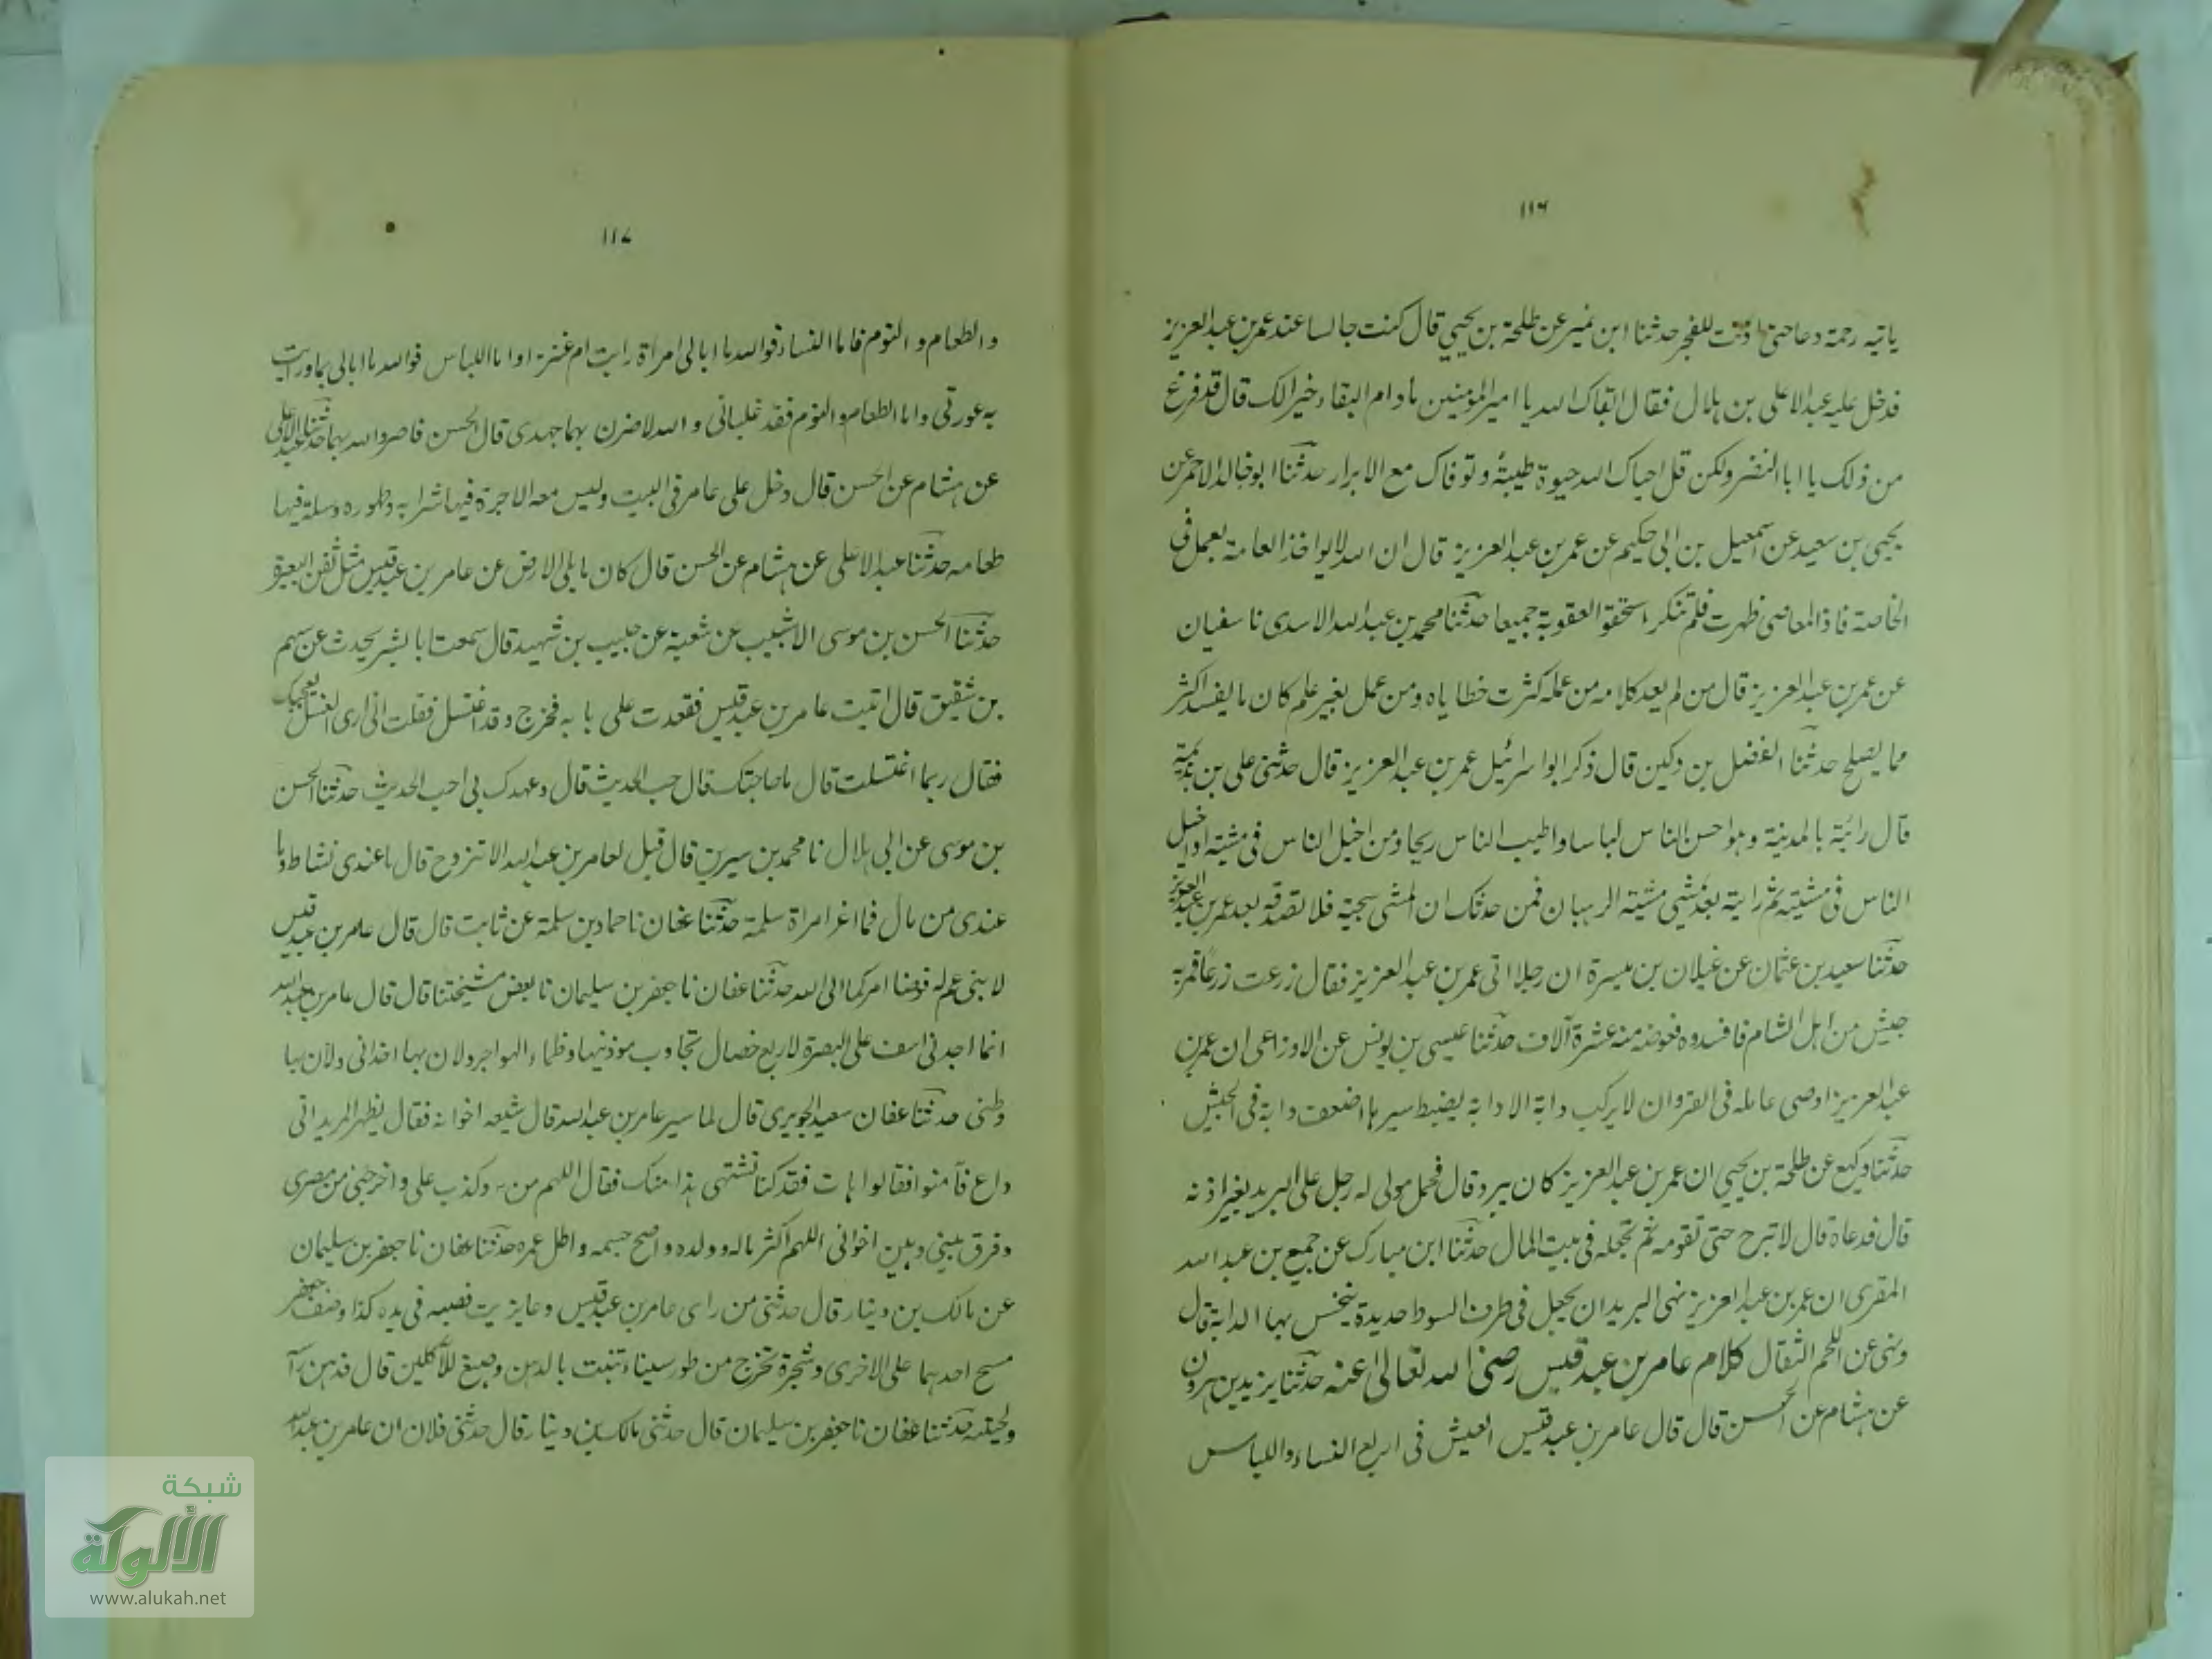 ١١٦
ياتيه رحمة دعا حتى اذنت للفجر حدثنا ابن نمير عن طلحة بن يحيي قال كنت جالسا عند عمر بن عبد العزيز
فدخل عليه عبد الاعلى بن هلال فقال ابقاك الله يا امير المؤمنين ما دام البقاء خيرا لك قال قد فرغ
من ذلك يا ابا النضر ولكن قل احياك الله حيوة طيبة وتوفاك مع الابرار حدثنا ابو خالد الاحمر عن
يحيى بن سعيد عن اسمعيل بن ابى حكيم عن عمر بن عبد العزيز قال ان الله لا يواخذ العامة بعمل فى
الخاصة فاذا المعاصى ظهرت فلم تنكر استحقو العقوبة جميعا حدثنا محمد بن عبد الله الاسدى نا سفيان
عن عمر بن عبد العزيز قال من لم يعد كلامه من عمله كثرت خطاياه ومن عمل بغير علم كان ما يفسد اكثر
مما يصلح حدثنا الفضل بن دكين قال ذكر ابو اسرائيل عمر بن عبد العزيز قال حدثنى على بن بذيمة
قال رائة بالمدينة وهو احسن الناس لباسا واطيب الناس ريحا ومن اخيل الناس فى مشيته او اخيل
الناس فى مشيته ثم رايته بعد يمشى مشية الرهبان فمن حدثك ان المشى سجية فلا تصدقه بعد عمر بن عبد العزيز
حدثنا سعيد بن عثمان عن غيلان بن ميسرة ان رجلا اتى عمر بن عبد العزيز فقال زرعت زرعا فمر به
جيش من اهل الشام فافسدوه فعوضه منه عشرة آلاف حدثنا عيسى بن يونس عن الاوزاعى ان عمر بن
عبد العزيز اوصى عامله فى الغزو ان لا يركب دابة الا دابة يضبط سيرها اضعف دابة فى الجيش
حدثنا وكيع عن طلحة بن يحيي ان عمر بن عبد العزيز كان يبرد قال فحمل مولى له رجل على البريد بغير اذنه
قال فدعاه قال لا تبرح حتى تقومه ثم تجعله فى بيت المال حدثنا ابن مبارك عن جميع بن عبد الله
المقرى ان عمر بن عبد العزيز نهى البريد ان يجعل فى طرف السوط حديدة ينخس بها الدابة قال
ونهى عن اللحم الثقال كلام عامر بن عبد قيس رضى الله تعالى عنه حدثنا يزيد بن هرون
عن هشام عن الحسن قال قال عامر بن عبد قيس العيش فى اربع النساء واللباس
١١٧
والطعام والنوم فاما النساء فوالله ما ابالى امراة رايت ام عنزة واما اللباس فوالله ما ابالى بما واريت
به عورتى واما الطعام والنوم فقد غلبانى والله لاضرن بهما جهدى قال الحسن فاضر والله بهما حدثنا عبد الاعلى
عن هشام عن الحسن قال دخل على عامر فى البيت وليس معه الا جرة فيها شرابه وطهوره وسلة فيها
طعامه حدثنا عبد الاعلى عن هشام عن الحسن قال كان ما يلى الارض عن عامر بن عبد قيس مثل ثفن البعير
حدثنا الحسن بن موسى الاشيب عن شعبة عن حبيب بن شهيد قال سمعت ابا بشر يحدث عن سهم
بن شقيق قال اتيت عامر بن عبد قيس فقعدت على بابه فخرج وقد اغتسل فقلت انى ارى الغسل يعجبك
فقال ربما اغتسلت قال ما حاجتك قال حب الحديث قال وعهدك بى احب الحديث حدثنا الحسن
بن موسى عن ابى هلال نا محمد بن سيرين قال قيل لعامر بن عبد الله الا تزوج قال ما عندى نشاط وما
عندى من مال فما اغر امراة سلمة حدثنا عفان نا حماد بن سلمة عن ثابت قال قال عامر بن عبد قيس
لابنى عم له فوضا امركما الى الله حدثنا عفان نا جعفر بن سليمان نا بعض مشيختنا قال قال عامر بن عبد الله
انما اجدنى اسف على البصرة لاربع خصال تجاوب موذنيها وظماء الهواجر ولان بها اخدانى ولان بها
وطنى حدثنا عفان سعيد الجريرى قال لما سير عامر بن عبد الله قال شيعه اخوانه فقال بظهر المربد انى
داع فآمنوا فقالوا هات فقد كنا نشتهى هذا منك فقال اللهم من وكذب على واخرجنى من مصرى
وفرق بينى وبين اخوانى اللهم اكثر ماله وولده واصح جسمه واطل عمره حدثنا عفان نا جعفر بن سليمان
عن مالك بن دينار قال حدثنى من راى عامر بن عبد قيس دعا بزيت فصبه فى يده كذا وصف جعفر
مسح احدهما على الاخرى وشجرة تخرج من طور سيناء تنبت بالدهن وصبغ للآكلين قال فدهن رآ
ولحيته حدثنا عفان نا جعفر بن سليمان قال حدثنى مالك بن دينار قال حدثنى فلان ان عامر بن عبد الله
شبكة
الألوكة
www.alukah.net